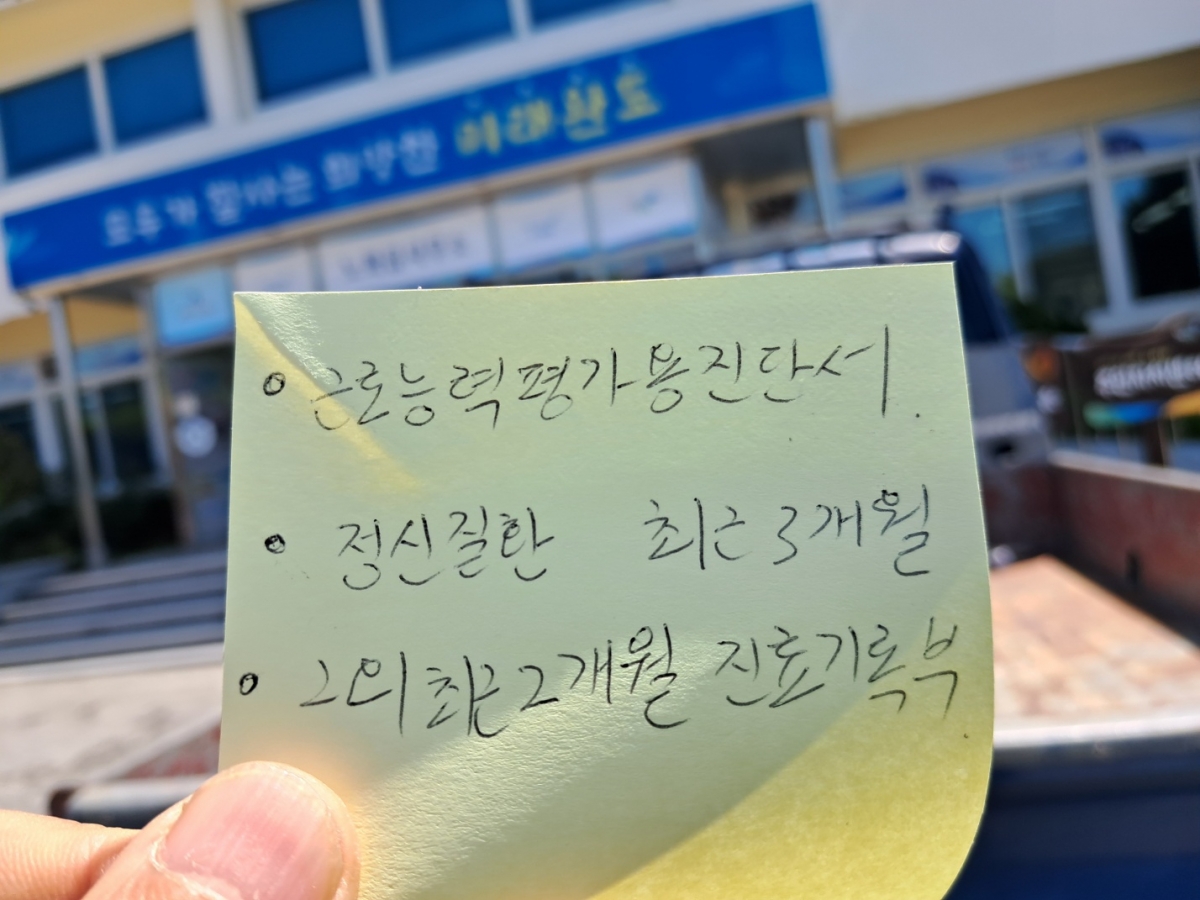 모두가 잘사는 희망찬 미래완도
근로능력평가용진단서.
정신질환 최근 3개월
그외 최근 2개월 진료기록부